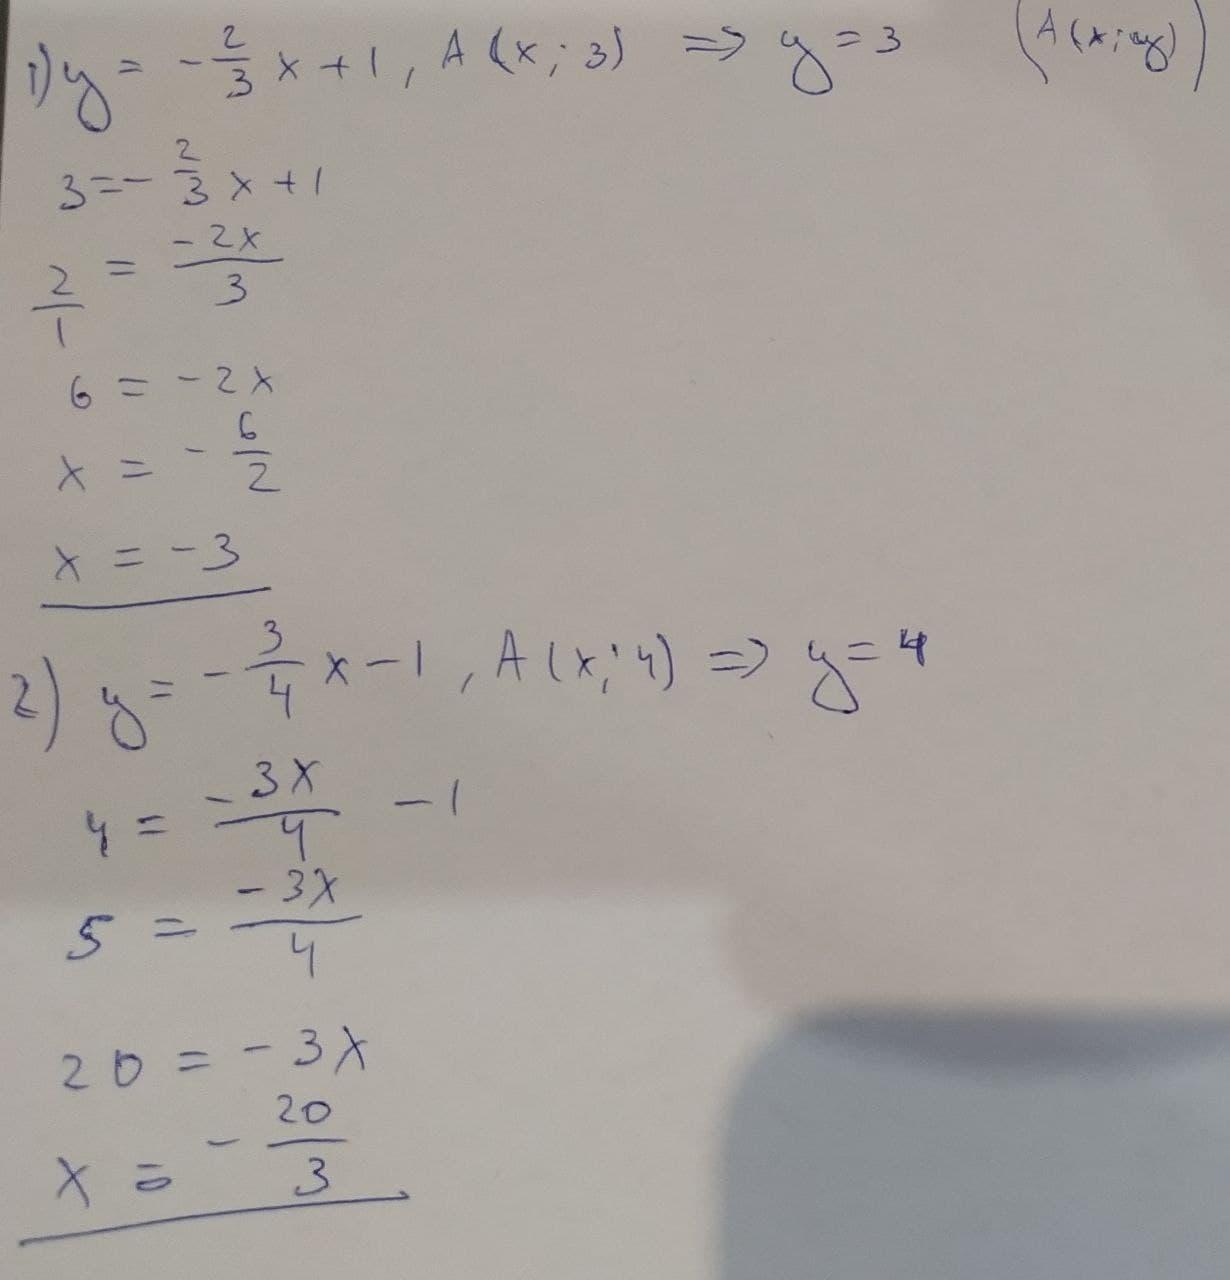 1) y = -2/3 x + 1, A (x; 3) ⇒ y = 3 (A(x; y))
3 = - 2/3 x + 1
2/1 = -2x/3
6 = -2x
x = - 6/2
x = -3
2) y = - 3/4 x - 1, A (x; 4) ⇒ y = 4
4 = -3x/4 - 1
5 = -3x/4
20 = -3x
x = - 20/3